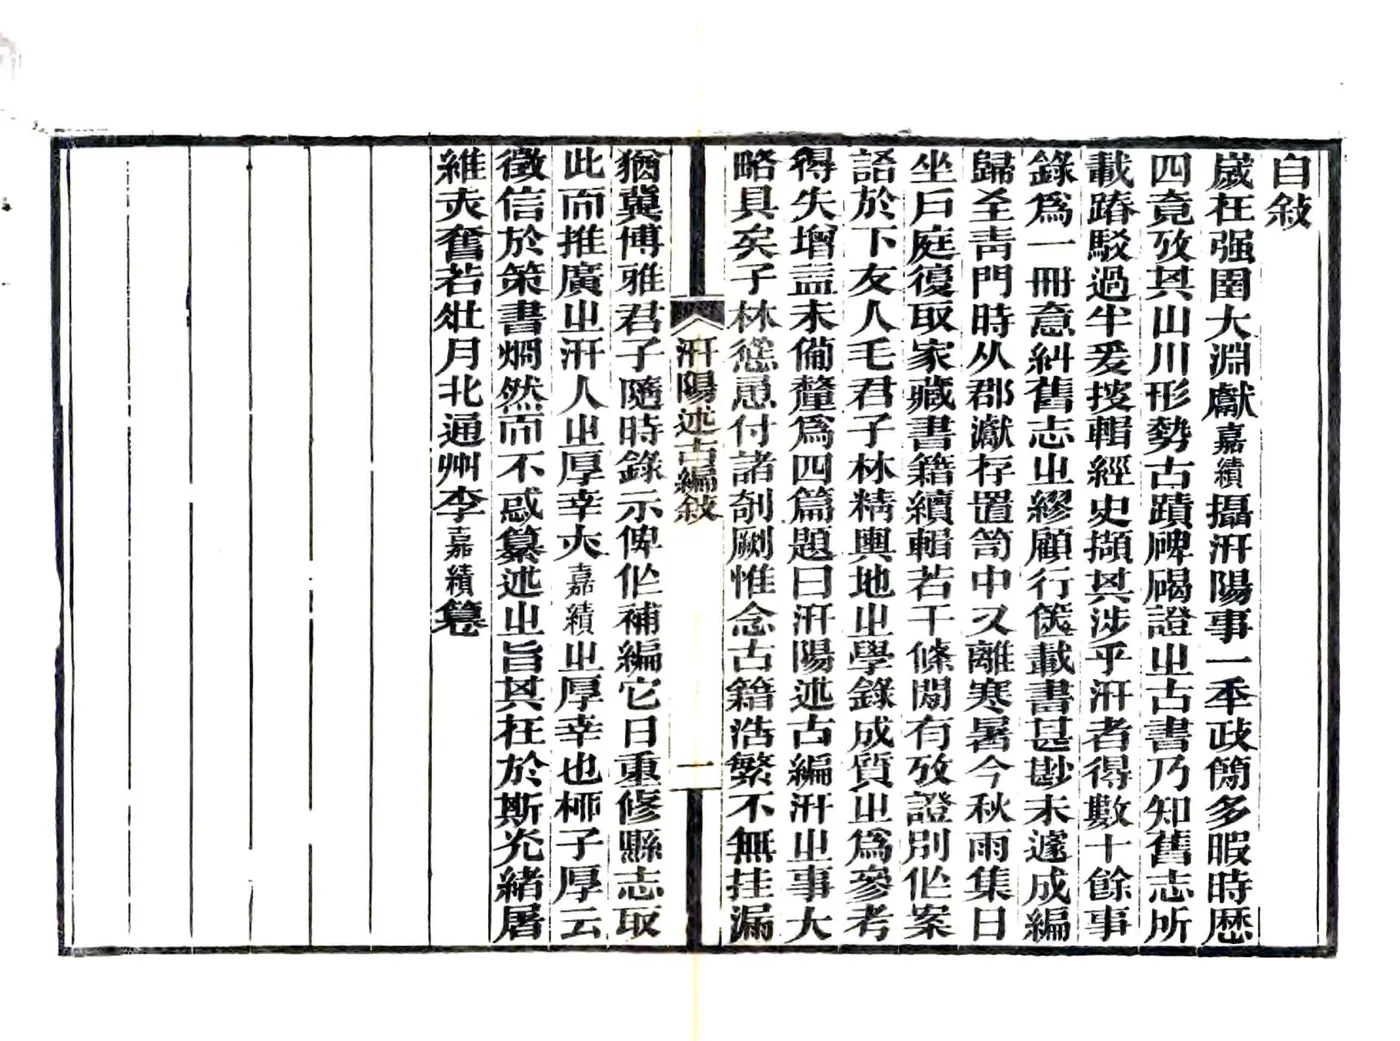 自敍
歲在强圉大淵獻嘉績攝汧陽事一秊政簡多暇時歷
四竟攷其山川形勢古蹟碑碣證㞢古書乃知舊志所
載踳駁過半爰披輯經史擷其涉乎汧者得數十餘事
錄爲一冊意糾舊志㞢繆顧行篋載書甚尟未遽成編
歸至靑門時从郡瀛存置笥中又離寒暑今秋雨集日
坐戶庭復取家藏書籍續輯若干條閒有攷證別作案
語於下友人毛君子林精輿地㞢學錄成質㞢爲參考
得失增益未備釐爲四篇題曰汧陽述古編汧㞢事大
略具矣子林慫恿付諸剞劂惟念古籍浩繁不無挂漏
汧陽述古編敍
一
猶冀博雅君子隨時錄示俾作補編它日重修縣志取
此而推廣㞢汧人㞢厚幸夫嘉績㞢厚幸也柳子厚云
徵信於策書烱然而不惑纂述㞢旨其在於斯光緒屠
維大奮若壯月北通州李嘉績篹